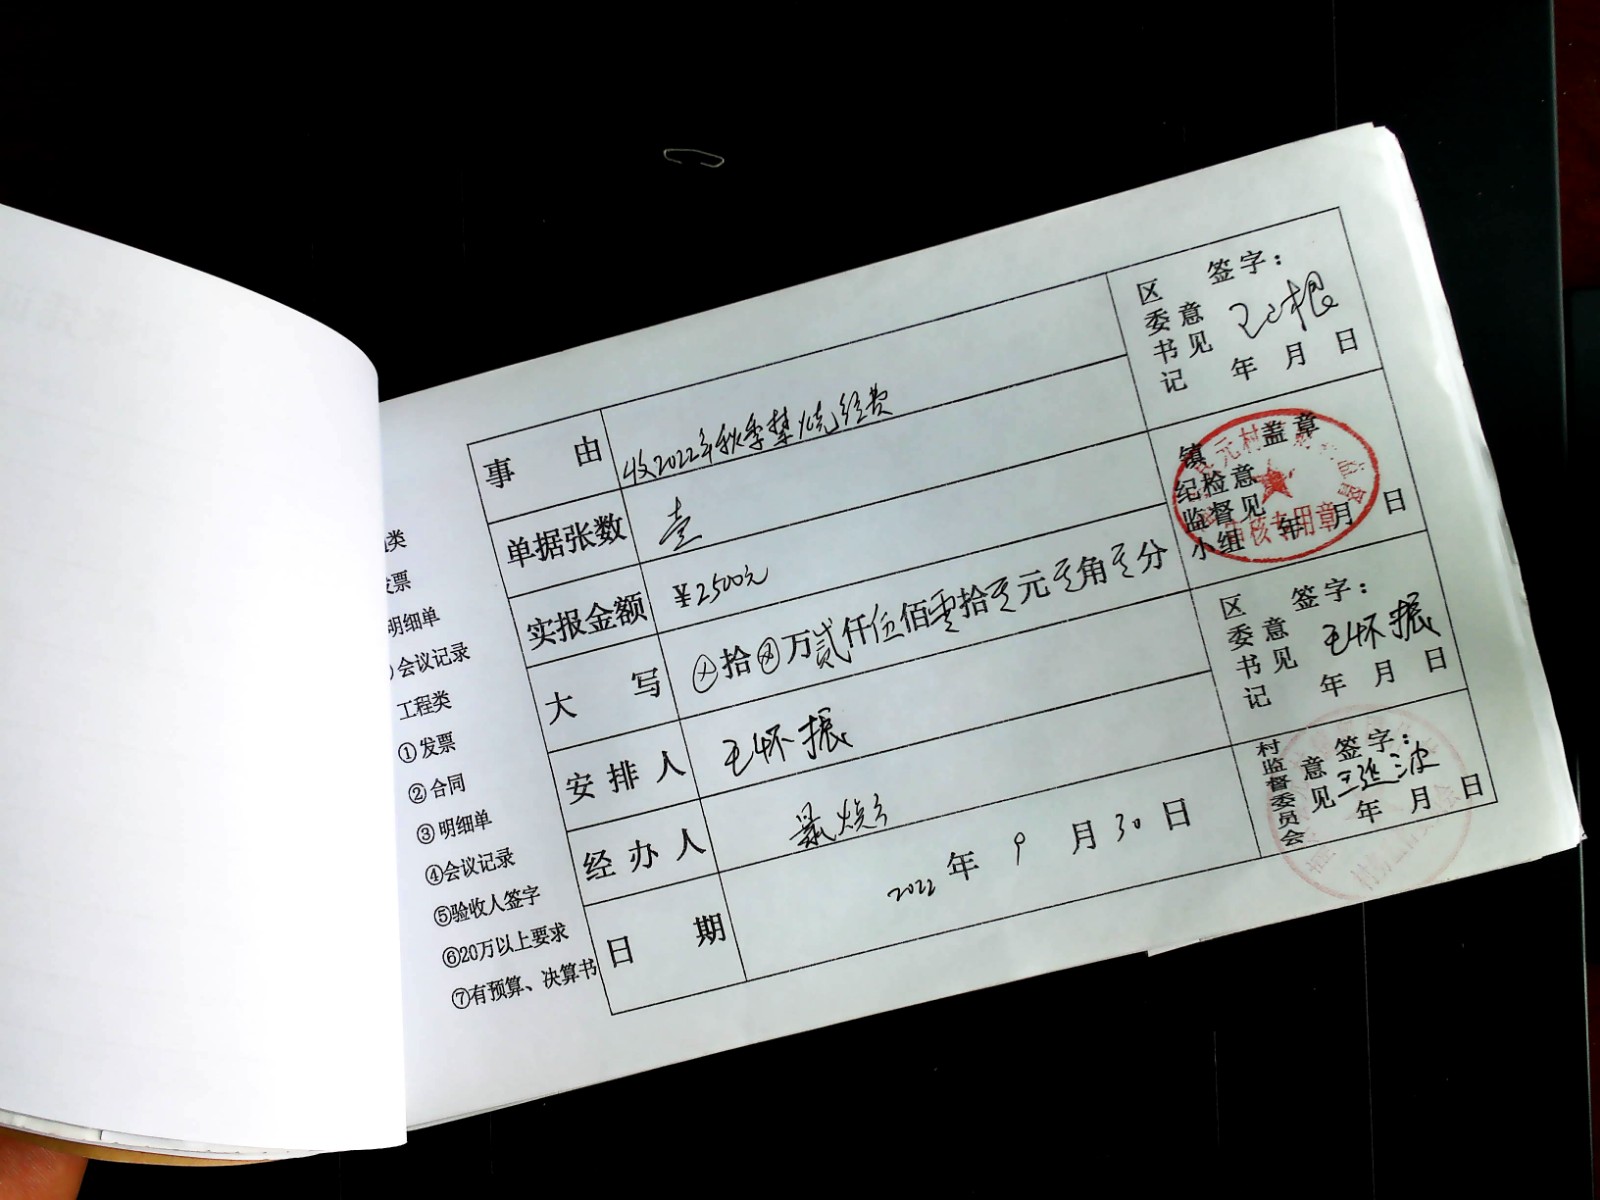 类
发票
明细单
会议记录
工程类
①发票
②合同
③明细单
④会议记录
⑤验收人签字
⑥20万以上要求
⑦有预算、决算书
事由
收2022年秋季禁烧经费
单据张数
壹
实报金额
¥2500元
大写
⊗拾⊗万贰仟伍佰零拾零元零角零分
安排人
王怀振
经办人
日期
2022年9月30日
区委书记意见
签字：
年月日
镇纪检监督小组意见
盖章
年月日
审核专用章
区委书记意见
签字：
王怀振
年月日
村监督委员会意见
签字：
年月日